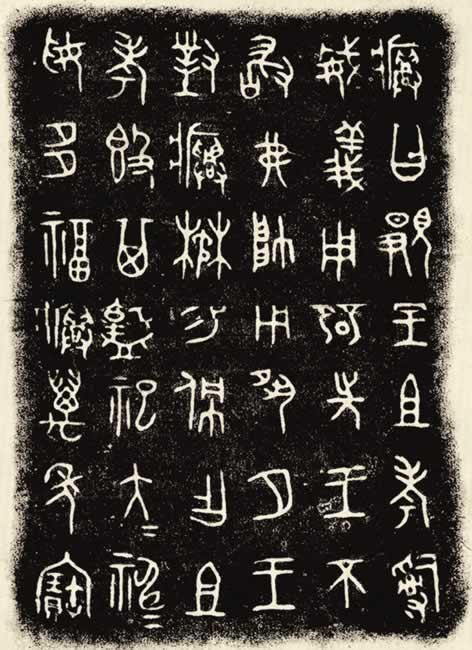 𤼈曰覭皇且考𤔲
威義用辟先王不
敢弗帥用夙夕王
對𤼈楙易佩乍且
考𣪘其𩰫祀大=神=
妥多福𤼈萬年寶